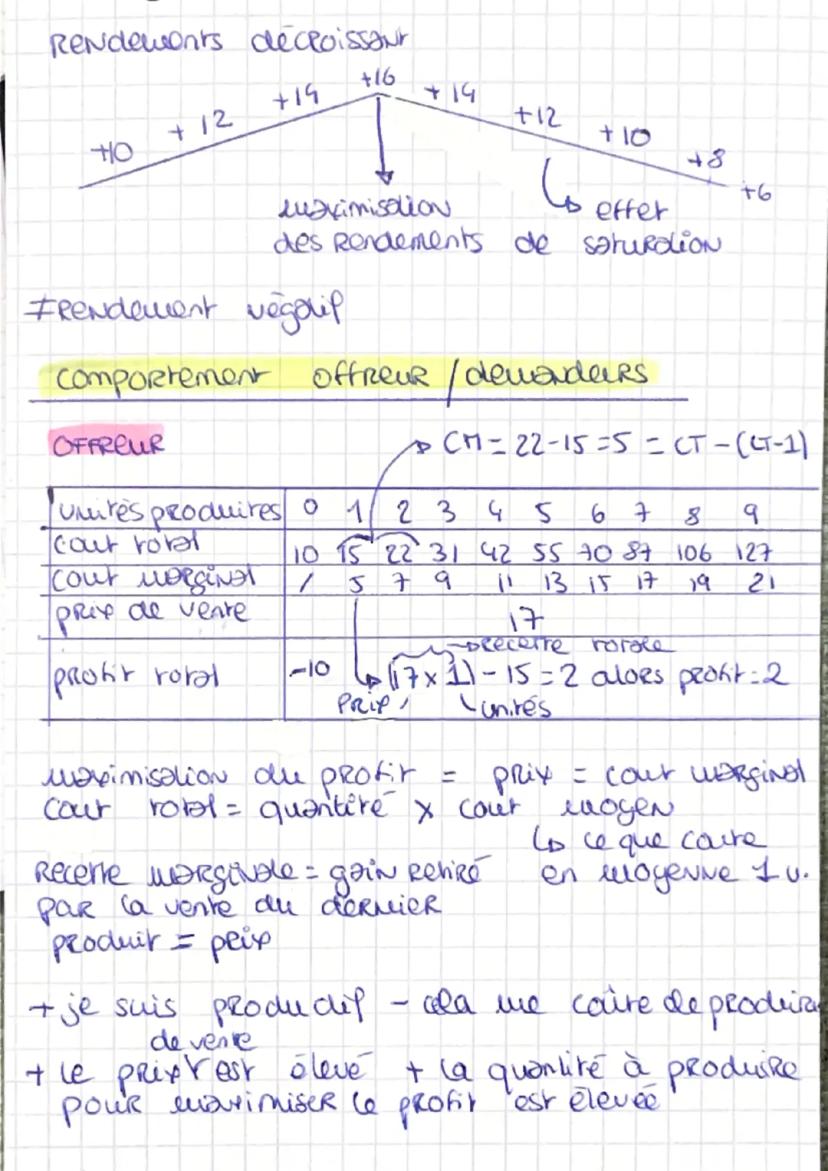 Rendements décroissant
+10 +12 +14 +16 +14 +12 +10 +8 +6
maximisation ↳ effet
des rendements de saturation
≠ rendement négatif
comportement offreur / demandeurs
OFFREUR → CM = 22-15 = 5 = CT - (CT-1)
unités produites 0 1 2 3 4 5 6 7 8 9
cout total 10 15 22 31 42 55 70 87 106 127
cout marginal / 5 7 9 11 13 15 17 19 21
prix de vente 17
→ recette totale
profit total -10 ↳ (17 x 1) - 15 = 2 alors profit : 2
Prix unités
maximisation du profit = prix = cout marginal
cout total = quantité x cout moyen
↳ ce que coute
Recette marginale = gain retiré en moyenne 1 u.
par la vente du dernier
produit = prix
+ je suis productif - cela me coûte de produire
de vente
+ le prix est élevé + la quantité à produire
pour maximiser le profit est élevée